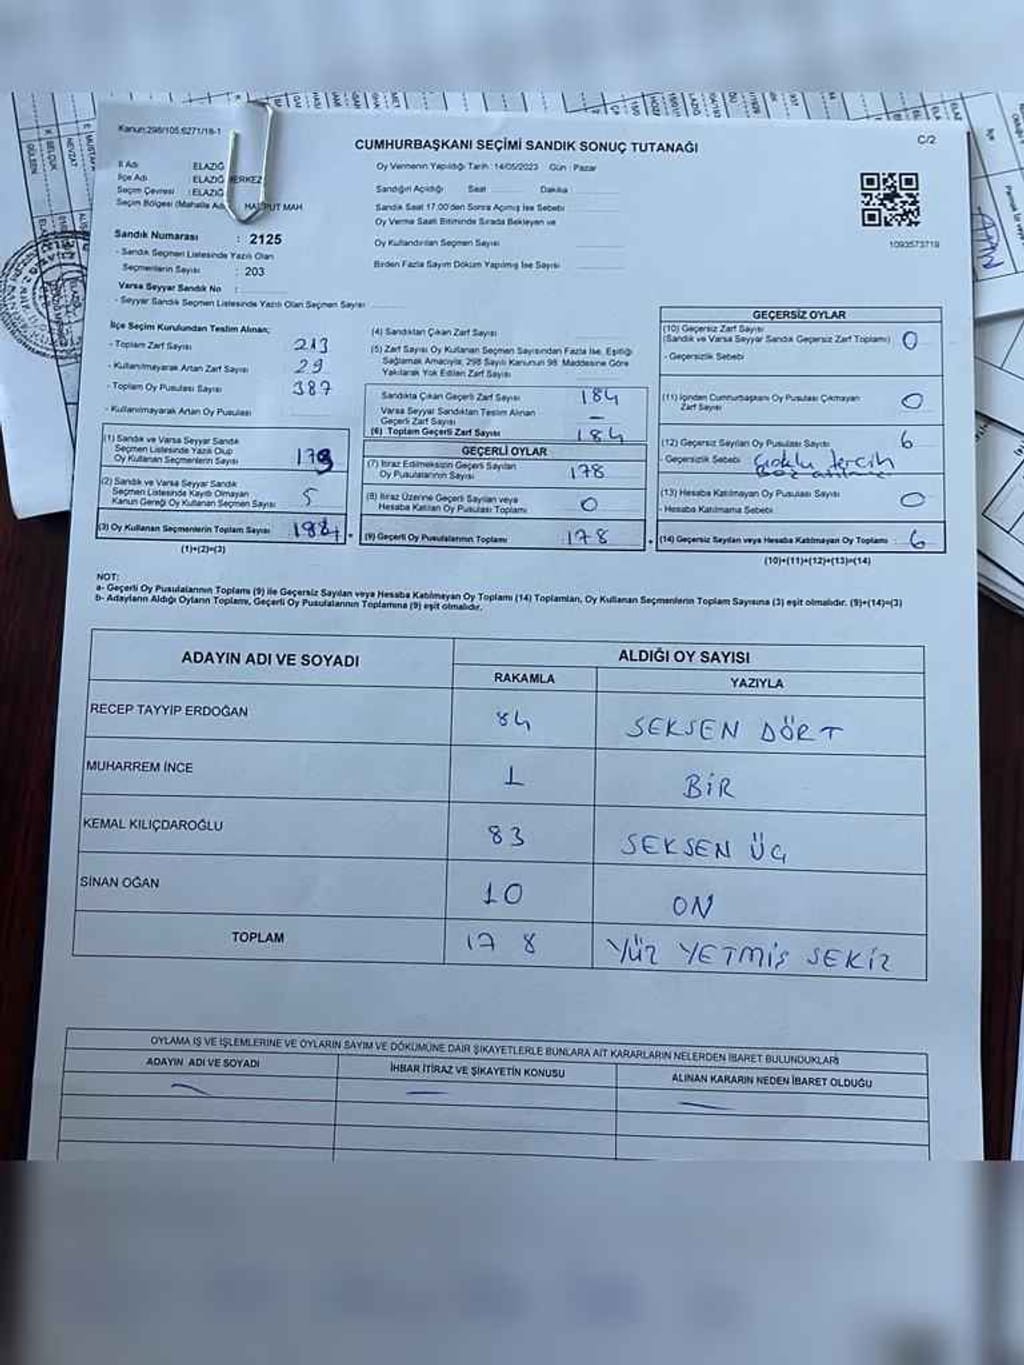 Kanun:298/105,6271/18-1
CUMHURBAŞKANI SEÇİMİ SANDIK SONUÇ TUTANAĞI
C/2
İl Adı : ELAZIĞ
İlçe Adı : ELAZIĞ MERKEZ
Seçim Çevresi : ELAZIĞ
Seçim Bölgesi (Mahalle Adı) : HARPUT MAH.
Sandık Numarası : 2125
- Sandık Seçmen Listesinde Yazılı Olan
Seçmenlerin Sayısı : 203
Varsa Seyyar Sandık No :
- Seyyar Sandık Seçmen Listesinde Yazılı Olan Seçmen Sayısı
Oy Vermenin Yapıldığı Tarih : 14/05/2023 Gün : Pazar
Sandığın Açıldığı Saat Dakika :
Sandık Saat 17.00'den Sonra Açılmış İse Sebebi
Oy Verme Saati Bitiminde Sırada Bekleyen ve
Oy Kullandırılan Seçmen Sayısı
Birden Fazla Sayım Döküm Yapılmış İse Sayısı
1093573719
İlçe Seçim Kurulundan Teslim Alınan;
- Toplam Zarf Sayısı 213
- Kullanılmayarak Artan Zarf Sayısı 29
- Toplam Oy Pusulası Sayısı 387
- Kullanılmayarak Artan Oy Pusulası
(1) Sandık ve Varsa Seyyar Sandık
Seçmen Listesinde Yazılı Olup
Oy Kullanan Seçmenlerin Sayısı 179
(2) Sandık ve Varsa Seyyar Sandık
Seçmen Listesinde Kayıtlı Olmayan
Kanun Gereği Oy Kullanan Seçmen Sayısı 5
(3) Oy Kullanan Seçmenlerin Toplam Sayısı 184
(1)+(2)=(3)
(4) Sandıktan Çıkan Zarf Sayısı
(5) Zarf Sayısı Oy Kullanan Seçmen Sayısından Fazla İse, Eşitliği
Sağlamak Amacıyla, 298 Sayılı Kanunun 98. Maddesine Göre
Yakılarak Yok Edilen Zarf Sayısı
Sandıkta Çıkan Geçerli Zarf Sayısı 184
Varsa Seyyar Sandıktan Teslim Alınan
Geçerli Zarf Sayısı –
(6) Toplam Geçerli Zarf Sayısı 184
GEÇERLİ OYLAR
(7) İtiraz Edilmeksizin Geçerli Sayılan
Oy Pusulalarının Sayısı 178
(8) İtiraz Üzerine Geçerli Sayılan veya
Hesaba Katılan Oy Pusulası Toplamı 0
(9) Geçerli Oy Pusulalarının Toplamı 178
GEÇERSİZ OYLAR
(10) Geçersiz Zarf Sayısı
(Sandık ve Varsa Seyyar Sandık Geçersiz Zarf Toplamı) 0
- Geçersizlik Sebebi
(11) İçinden Cumhurbaşkanı Oy Pusulası Çıkmayan
Zarf Sayısı 0
(12) Geçersiz Sayılan Oy Pusulası Sayısı 6
- Geçersizlik Sebebi Çoklu tercih
(13) Hesaba Katılmayan Oy Pusulası Sayısı 0
- Hesaba Katılmama Sebebi
(14) Geçersiz Sayılan veya Hesaba Katılmayan Oy Toplamı 6
(10)+(11)+(12)+(13)=(14)
NOT:
a- Geçerli Oy Pusulalarının Toplamı (9) ile Geçersiz Sayılan veya Hesaba Katılmayan Oy Toplamı (14) Toplamları, Oy Kullanan Seçmenlerin Toplam Sayısına (3) eşit olmalıdır. (9)+(14)=(3)
b- Adayların Aldığı Oyların Toplamı, Geçerli Oy Pusulalarının Toplamına (9) eşit olmalıdır.
ADAYIN ADI VE SOYADI
ALDIĞI OY SAYISI
RAKAMLA YAZIYLA
RECEP TAYYİP ERDOĞAN 84 SEKSEN DÖRT
MUHARREM İNCE 1 BİR
KEMAL KILIÇDAROĞLU 83 SEKSEN ÜÇ
SİNAN OĞAN 10 ON
TOPLAM 178 YÜZ YETMİŞ SEKİZ
OYLAMA İŞ VE İŞLEMLERİNE VE OYLARIN SAYIM VE DÖKÜMÜNE DAİR ŞİKAYETLERLE BUNLARA AİT KARARLARIN NELERDEN İBARET BULUNDUKLARI
ADAYIN ADI VE SOYADI İHBAR İTİRAZ VE ŞİKAYETİN KONUSU ALINAN KARARIN NEDEN İBARET OLDUĞU